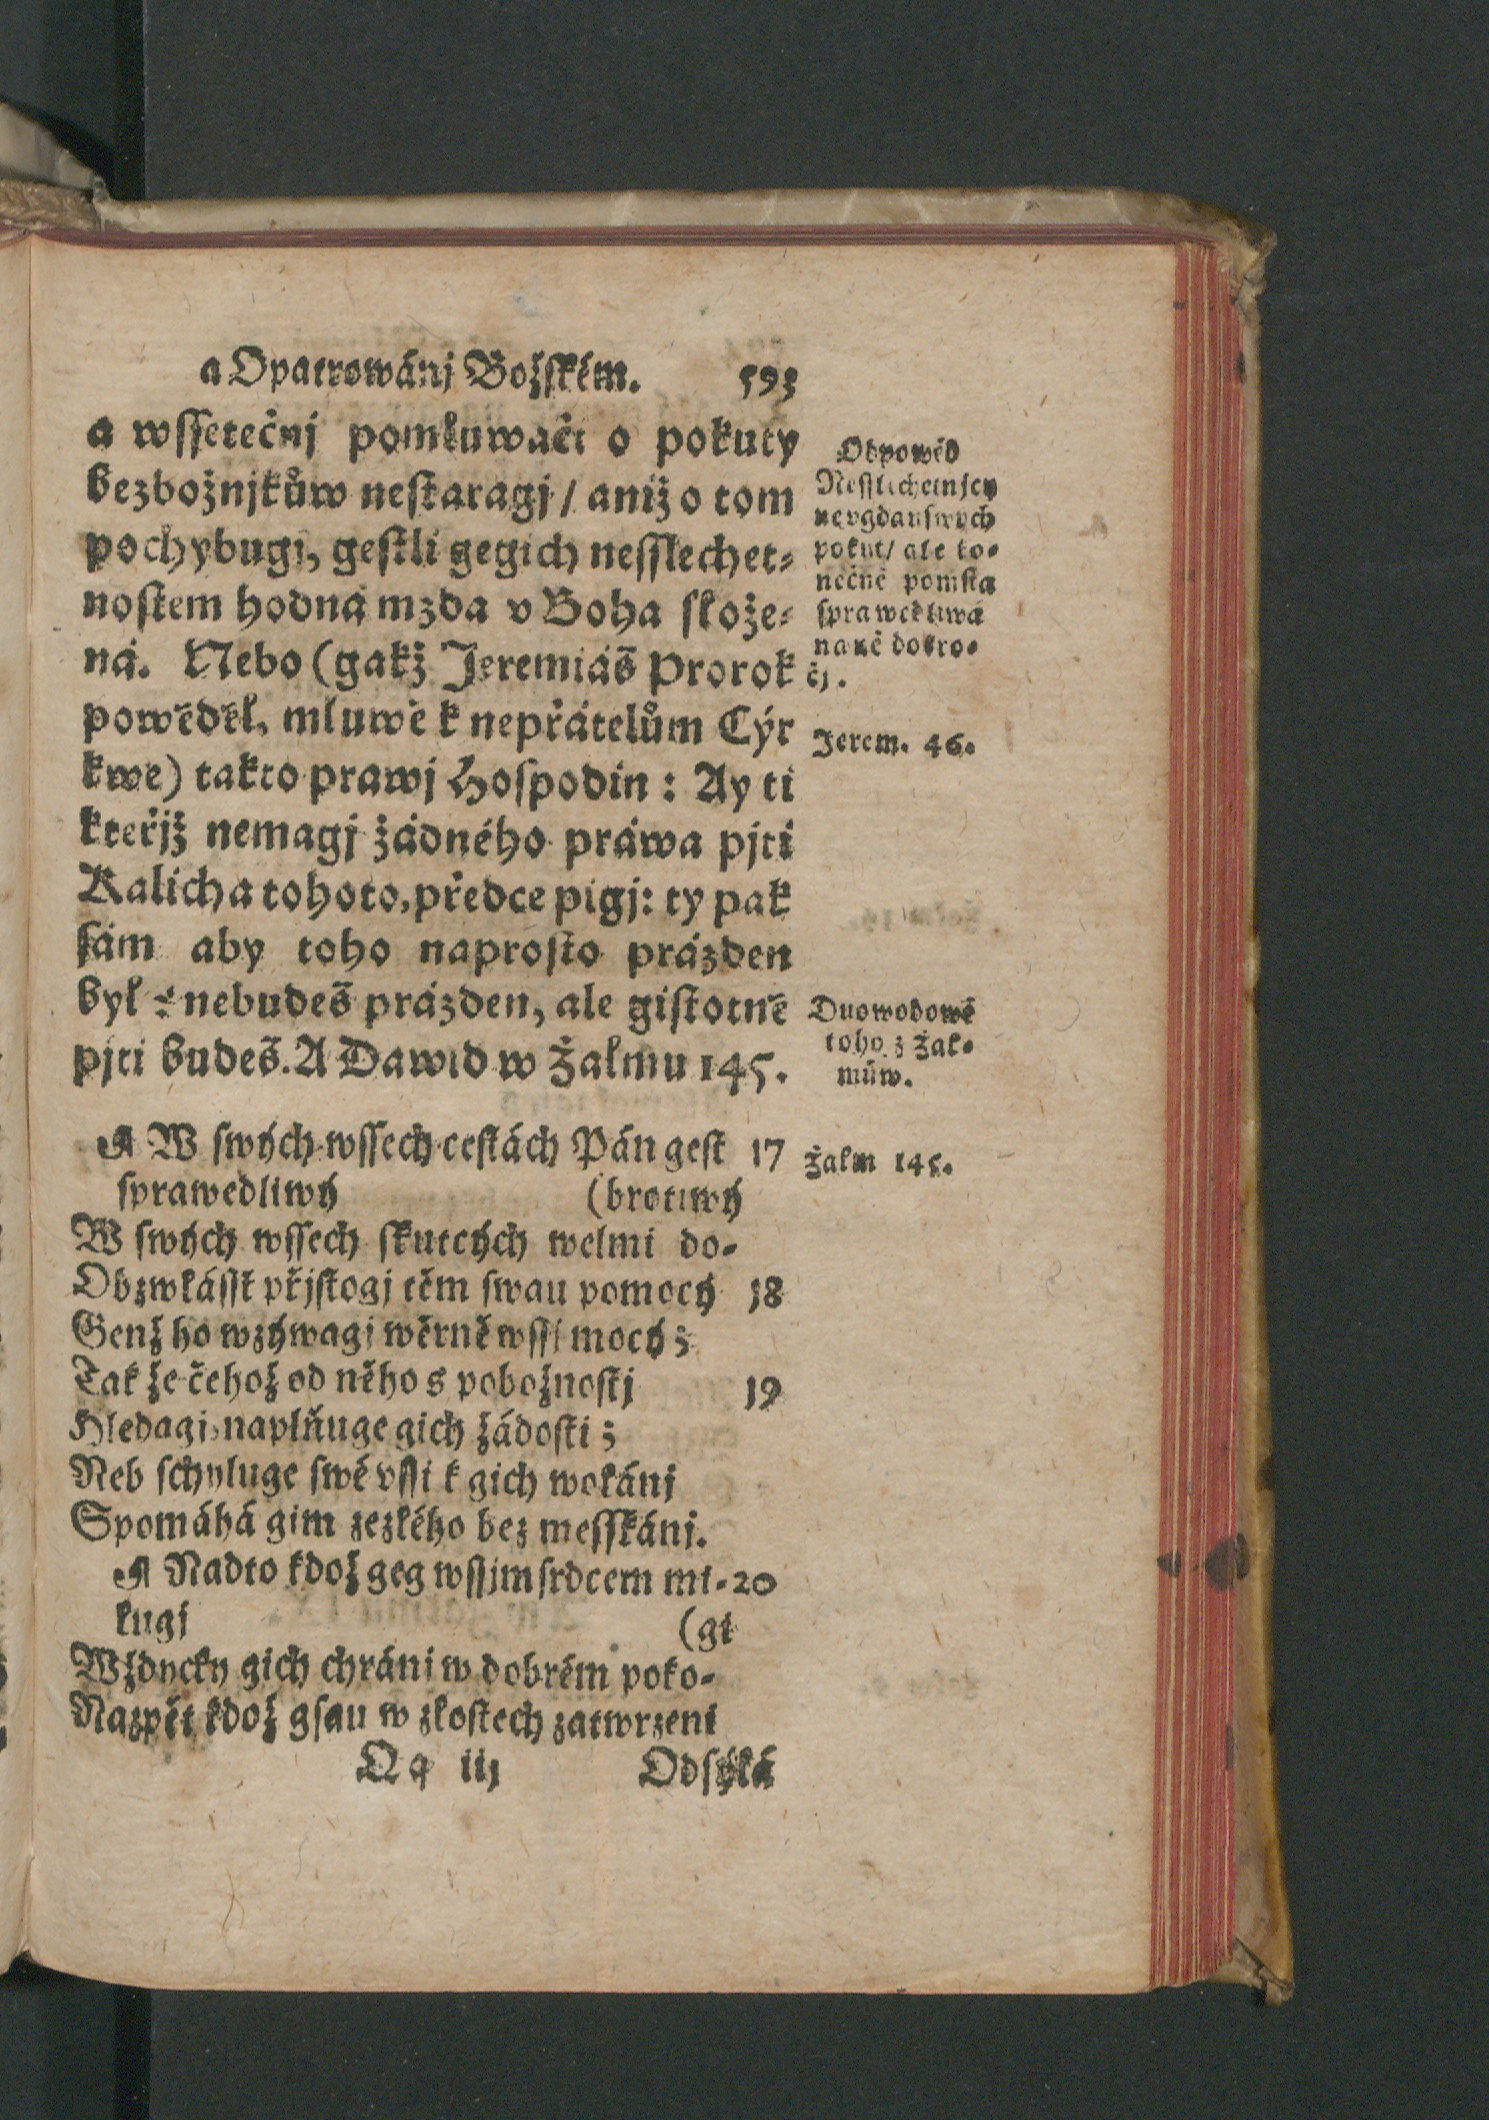 a Opatrowánj Božſkém. 593
a wſſetečnj pomluwači o pokuty
bezbožnjkůw neſtaragj / aniž o tom
pochybugj, geſtli gegich neſſlechet-
noſtem hodná mzda v Boha ſlože-
ná. Nebo (gakž Jeremiáš Prorok
powěděl, mluwě k nepřátelům Cýr
kwe) takto prawj Hoſpodin : Ay ti
kteřjž nemagj žádného práwa pjti
Kalicha tohoto, předce pigj: ty pak
ſám aby toho naproſto prázden
byl ? nebudeš prázden, ale giſtotně
pjti budeš. A Dawid w Žalmu 145.
Odpowěd
Neſſlechetnjcy
nevgdau ſwých
pokut / ale ko-
nečně pomſta
ſprawedliwá
na ně dokro-
čj.
Jerem. 46.
Duowodowé
toho z Žal-
můw.
¶ W ſwých wſſech ceſtách Pán geſt 17
ſprawedliwý (brotiwý
W ſwých wſſech ſkutcých welmi do-
Obzwláſſt přjſtogj těm ſwau pomocý 18
Genž ho wzýwagj wěrně wſſj mocý ;
Tak že čehož od něho s pobožnoſtj 19
Hledagj, naplňuge gich žádoſti ;
Neb ſchyluge ſwé vſſi k gich wolánj
Spomáhá gim zezlého bez meſſkánj.
¶ Nadto kdož geg wſſjm ſrdcem mi- 20
lugj (gi
Wždycky gich chránj w dobrém poko-
Nazpět kdož gſau w zloſtech zatwrzeni
Žalm 145.
Qq iij Odſýlá